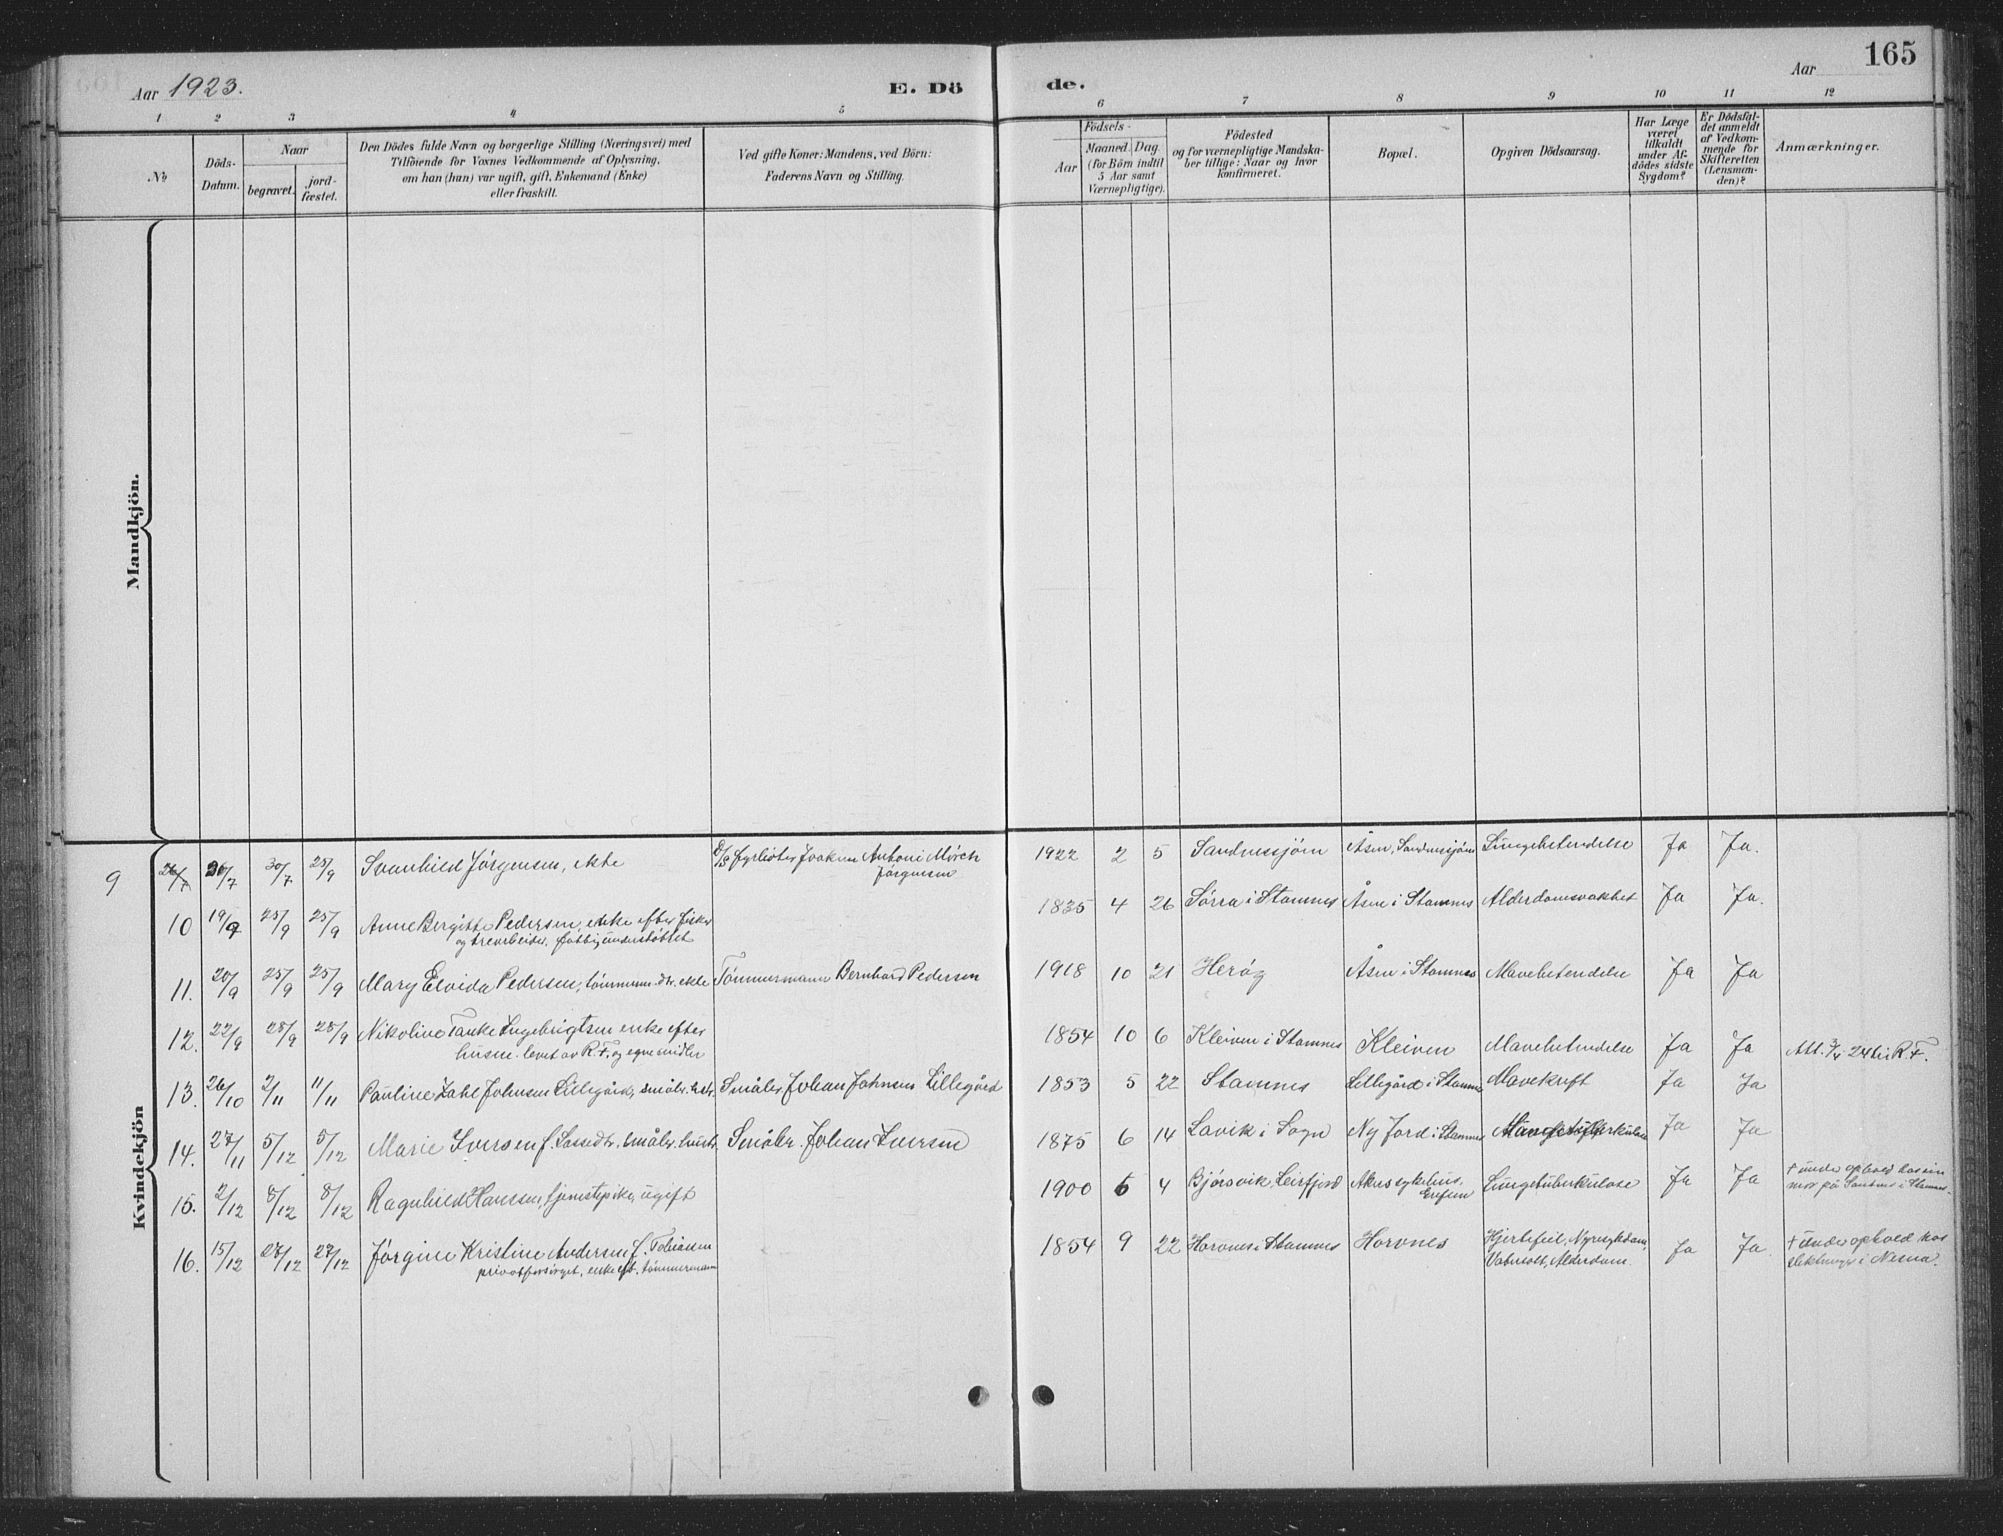 Aar 1923.
E. Dö
de.
Aar
165
1 2 3 4 5 6 7 8 9 10 11 12
No
Döds-
Datum.
Naar
begravet.
jord-
fæstet.
Den Dödes fulde Navn og borgerlige Stilling (Næringsvei) med
Tilföiende for Voxnes Vedkommende af Oplysning,
om han (hun) var ugift, gift, Enkemand (Enke)
eller fraskilt.
Ved gifte Koner: Mandens, ved Börn:
Faderens Navn og Stilling.
Födsels-
Aar
Maaned. Dag.
(for Börn indtil
5 Aar samt
Værnepligtige).
Födested
og for værnepligtige Mandska-
ber tillige: Naar og hvor
konfirmeret.
Bopæl.
Opgiven Dödsaarsag.
Har Læge
været
tilkaldt
under Af-
dödes sidste
Sygdom?
Er Dödsfal-
det anmeldt
af Vedkom-
mende for
Skifteretten
(Lensman-
den)?
Anmærkninger.
Mandkjön.
Kvindekjön
9 26/7 30/7 30/7 25/9 Svanhild Jørgensen, ekte Fyrbøter Joakim Antoni Mørch Jørgensen 1922 2 5 Sandnessjøen Åsen, Sandnessjøen Lungebetendelse Ja Ja.
10 19/9 25/9 25/9 Anne Bergitte Pedersen, enke efter fisker 1835 4 26 Sørra i Stamnes Åsen i Stamnes Alderdomssvakhet Ja Ja.
og trearbeider. fattigunderstøttet
11. 20/9 25/9 25/9 Mary Elvida Pedersen, tømmerm. dtr. ekte Tømmermann Bernhard Pedersen 1918 10 21 Herøy Åsen i Stamnes Mavebetendelse Ja Ja
12. 22/9 28/9 28/9 Nikoline Tanke Ingebrigtsen enke efter 1854 10 6 Kleiven i Stamnes Kleiven Mavebetendelse Ja Ja Att. 3/4 24 til R.F.
husm. levet av R.F. og egne midler
13. 26/10 2/11 11/11 Pauline Zahl Johnsen Lillegård, småbr. hstr. Småbr Johan Johnsen Lillegård 1853 5 22 Stamnes Lillegård i Stamnes Mavekreft Ja Ja
14. 27/11 5/12 5/12 Marie Iversen f. Lassedtr, småbr. hustr. Småbr. Johan Iversen 1875 6 14 Lavik i Sogn Ny Jord i Stamnes Ja Ja
15. 2/12 8/12 8/12 Ragnhild Hanssen, tjenestepike, ugift 1900 6 4 Bjørsvik, Leirfjord Akers sykehus. Lungetuberkulose Ja Ja † under ophold hos sin
mor på Sandnes i Stamnes.
16. 15/12 27/12 27/12 Jørgine Kristine Andersen f. Tobiassen 1854 9 22 Horvnes i Stamnes Horvnes Hjertefeil, Nyresykdom, Ja Ja. † under ophold hos
privatforsørget, enke eft. tømmermann Vatersott, Alderdom. slektninger i Nesna.